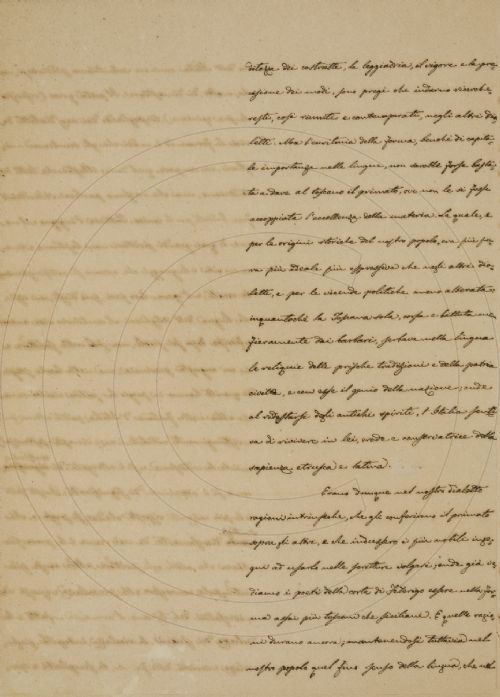 ditezza dei costrutti, la leggiadria, il vigore e la pre-
cisione dei modi, sono pregi che indarno ricerche-
resti, così riuniti e contemperati, negli altri dia-
letti. Ma l'euritmia della forma, benchè di capita-
le importanza nelle lingue, non sarebbe forse basta-
ta a dare al toscano il primato, ove non le si fosse
accoppiata l'eccellenza della materia. La quale, e
per le origini storiche del nostro popolo, era più pu-
ra più ideale più espressiva che negli altri dia-
letti, e per le vicende politiche meno alterata:
inquantochè la Toscana sola, corsa e battuta me-
fieramente dai barbari, serbava nella lingua
le reliquie delle prische tradizioni e della patria
civiltà, e con esse il genio della nazione; onde
al ridestarsi degli antichi spiriti, l'Italia senti-
va di rivivere in lei, erede e conservatrice della
sapienza etrusca e latina.
Erano dunque nel nostro dialetto
ragioni intrinseche, che gli conferirono il primato
sopra gli altri, e che indussero i più nobili inge-
gni ad usarlo nelle scritture volgari; onde già ve-
diamo i poeti della corte di Federigo essere nella for-
ma assai più toscani che siciliani. E quelle ragio-
ni durano ancora; mantenendosi tuttavia nel
nostro popolo quel fine senso della lingua, che nel